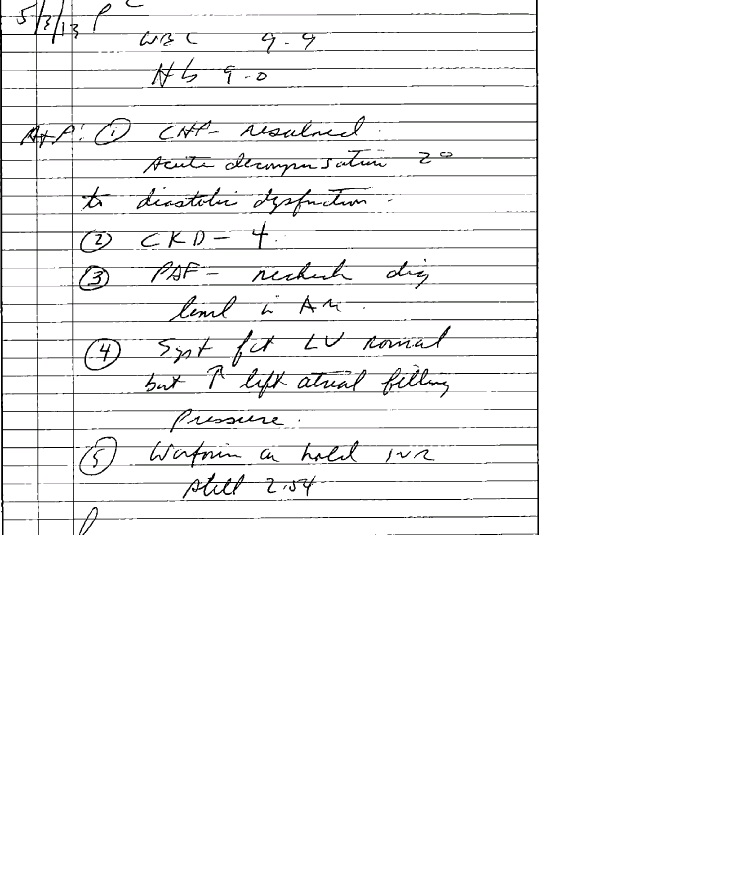 5/3/13 P
WBC 9.9
Hb 9.0
A+P: ① CHF- resolved.
Acute decompensation 2°
to diastolic dysfunction.
② CKD - 4.
③ PAF - recheck dig
level in AM.
④ Syst fct LV normal
but ↑ left atrial filling
Pressure.
⑤ Warfarin on hold INR
still 2.54